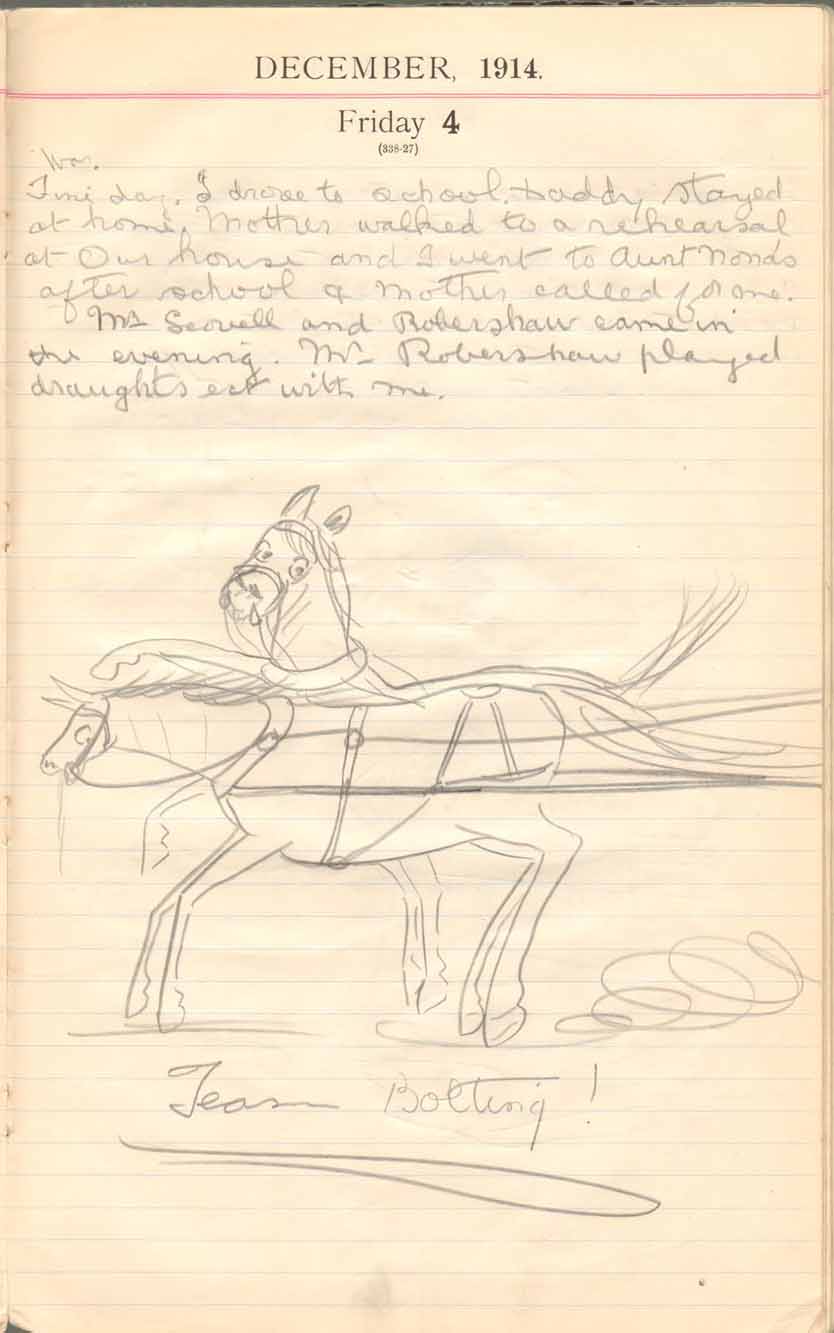 DECEMBER, 1914.
Friday 4
(338-27)
War.
Fine day. I drove to school. Daddy stayed
at home. Mother walked to a rehearsal
at Our house and I went to Aunt Nonds
after school & Mother called for me.
Mr Scovell and Robershaw came in
the evening. Mr Robershaw played
draughts ect with me.
Team Bolting!